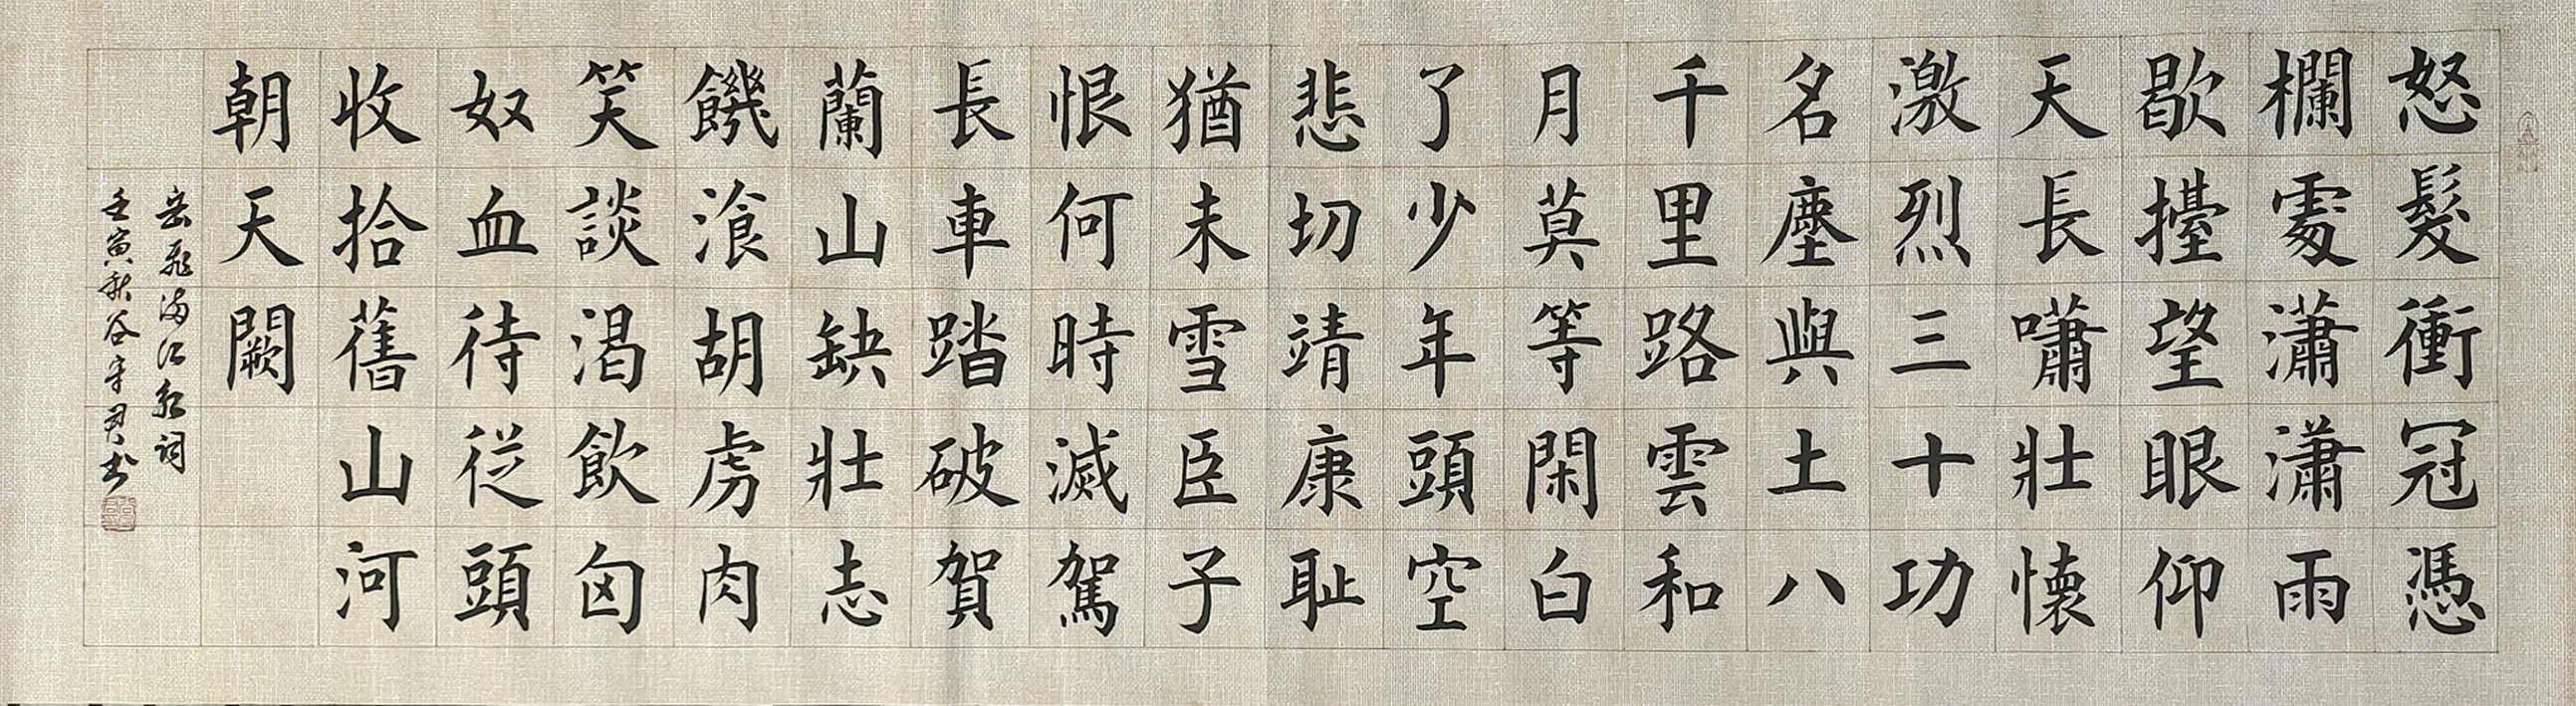 怒髮衝冠憑
欄處瀟瀟雨
歇擡望眼仰
天長嘯壯懷
激烈三十功
名塵與土八
千里路雲和
月莫等閑白
了少年頭空
悲切靖康恥
猶未雪臣子
恨何時滅駕
長車踏破賀
蘭山缺壯志
饑飡胡虜肉
笑談渴飲匈
奴血待從頭
收拾舊山河
朝天闕
岳飛滿江紅詞
壬寅秋谷守君书